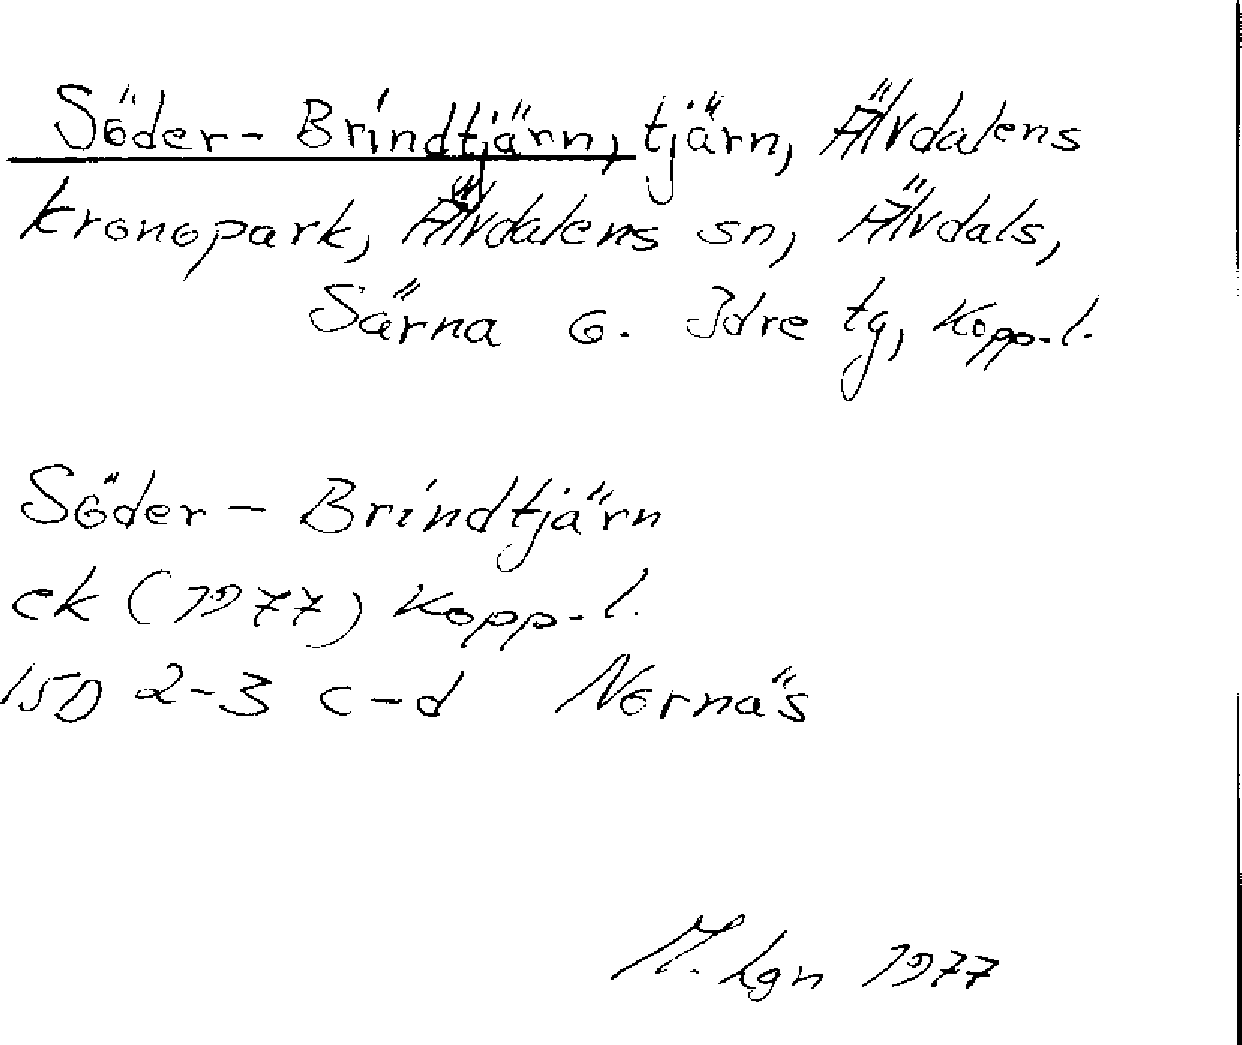 Söder-Brindtjärn, tjärn, Älvdalens
kronopark, Älvdalens sn, Älvdals,
Särna o. Idre tg, Kopp-l.
Söder-Brindtjärn
ek (1977) Kopp-l.
15D 2-3 c-d Nornäs
M. Lgn 1977